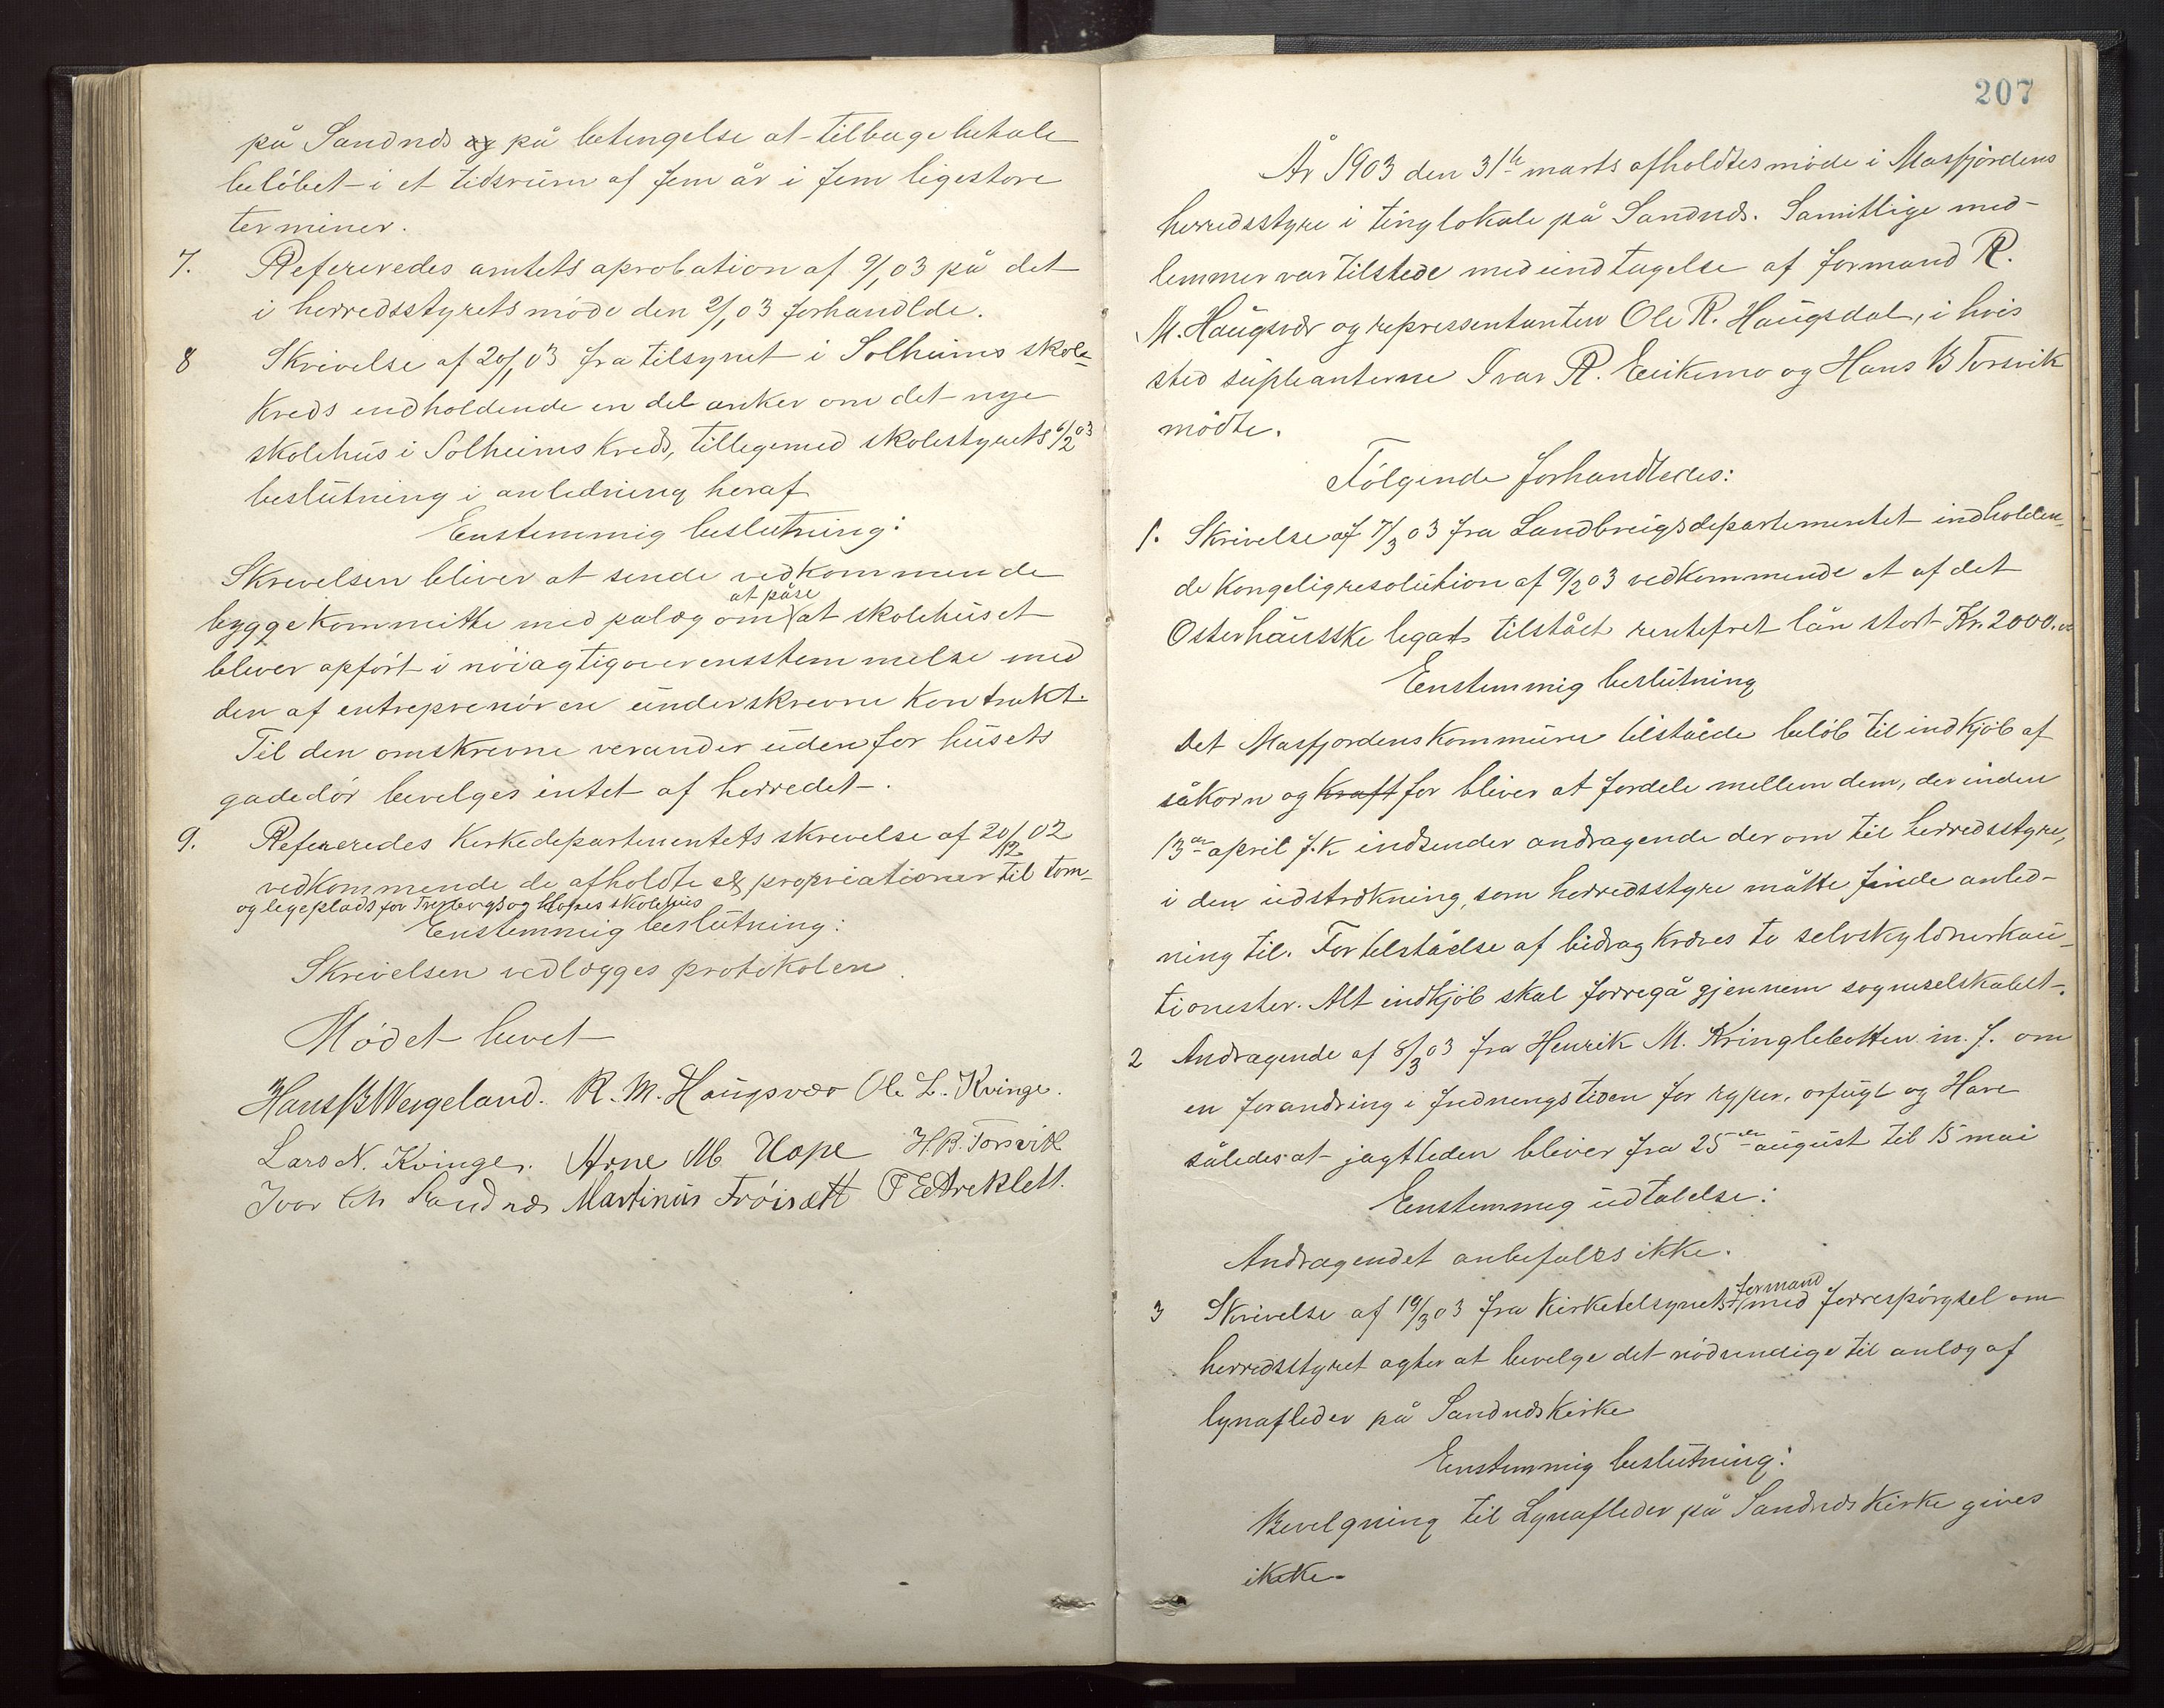 på Sandnæs og på betingelse at tilbagebetale
beløbet i et tidsrum af fem år i fem ligestore
terminer.
7. Refereredes amtets aprobation af 9/1 03 på det
i herredsstyrets møde den 2/1 03 forhandlde.
8 Skrivelse af 20/1 03 fra tilsynet i Solheims skole-
kreds endholdende en del anker om det nye
skolehus i Solheims kreds, tillegemed skolestyrets 6/2 03
beslutning i anledning heraf
Enstemmig beslutning:
Skrevelsen bliver at sende vedkommende
byggekommitte med palæg om at påse at skolehuset
bliver opført i nöiagtigoverensstemmelse med
den af entreprenören underskrevne kontrakt.
Til den omskrevne verander udenfor husets
gadedør bevelges intet af herredet.
9. Refereredes Kirkedepartementets skrevelse af 20/12 02
vedkommende de afholdte expropriationer til tom-
og legeplads for Trezbergs og Hopes skolehus
Enstemmig beslutning:
Skrivelsen vedlægges protokolen.
Mödet hevet
Hans B Wergeland. R. M. Haugsvær Ole L. Kvinge.
Lars N. Kvinge. Arne M. Hope H. B. Torsvik
Ivar Ch Sandnæs Martinus Fröisætt T E Areklett.
207
År 1903 den 31te marts afholdtes møde i Masfjördens
herredsstyre i tinglokale på Sandnæs. Samtlige med-
lemmer var tilstede med undtagelse af formand R.
M. Haugsvær og repressentanten Ole R. Haugsdal, i hvis
sted supleanterne Ivar R. Eeikemo og Hans B Torsvik
mödte.
Fölgende forhandledes:
1. Skrivelse af 7/3 03 fra Landbrugsdepartementet indholden-
de kongeligresolution af 9/2 03 vedkommende et af det
Osterhausske legat tilstået rentefret lån stort Kr. 2000.00
Eenstemmig beslutning
Det Masfjordens kommune tilståede beløb til indkjöb af
såkorn og kraftfor bliver at fordele mellem dem, der inden
13de april f.k indsender andragende derom til herredsstyre,
i den udstrækning, som herredsstyre måtte finde anled-
ning til. For tilståelse af bidrag kræves to selvskyldnerkau-
tionester. Alt indkjöb skal forregå gjennem sogneselskabet.
2 Andragende af 8/3 03 fra Henrik M. Kringlebotten m. f. om
en forandring i fredningstiden for ryper, orfugl og Hare
således at jagttiden bliver fra 25de august til 15 mai
Eenstemmig udtalelse:
Andragendet anbefales ikke.
3 Skrivelse af 19/3 03 fra Kirketelsynets formand med forrespörgsel om
herredsstyret agter at bevelge det nödvendige til anlæg af
lynafleder på Sandnæs kirke
Eenstemmig beslutning:
Bevelgning til Lynafleder på Sandnæs kirke gives
ikke.